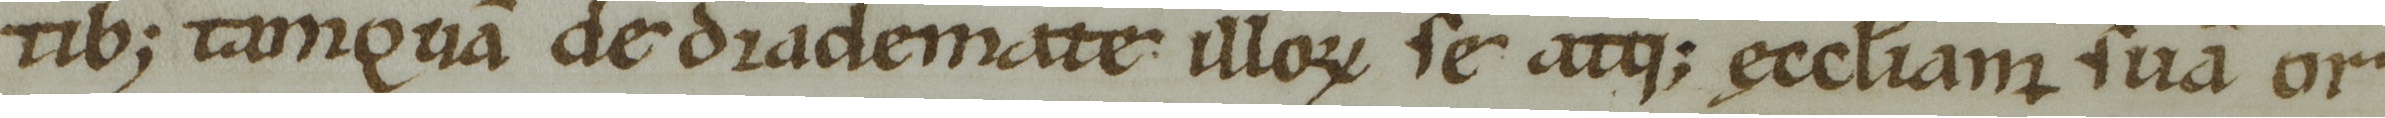 tib; tamquā de diademate illoꝝ se atq; ęccłiam suā or